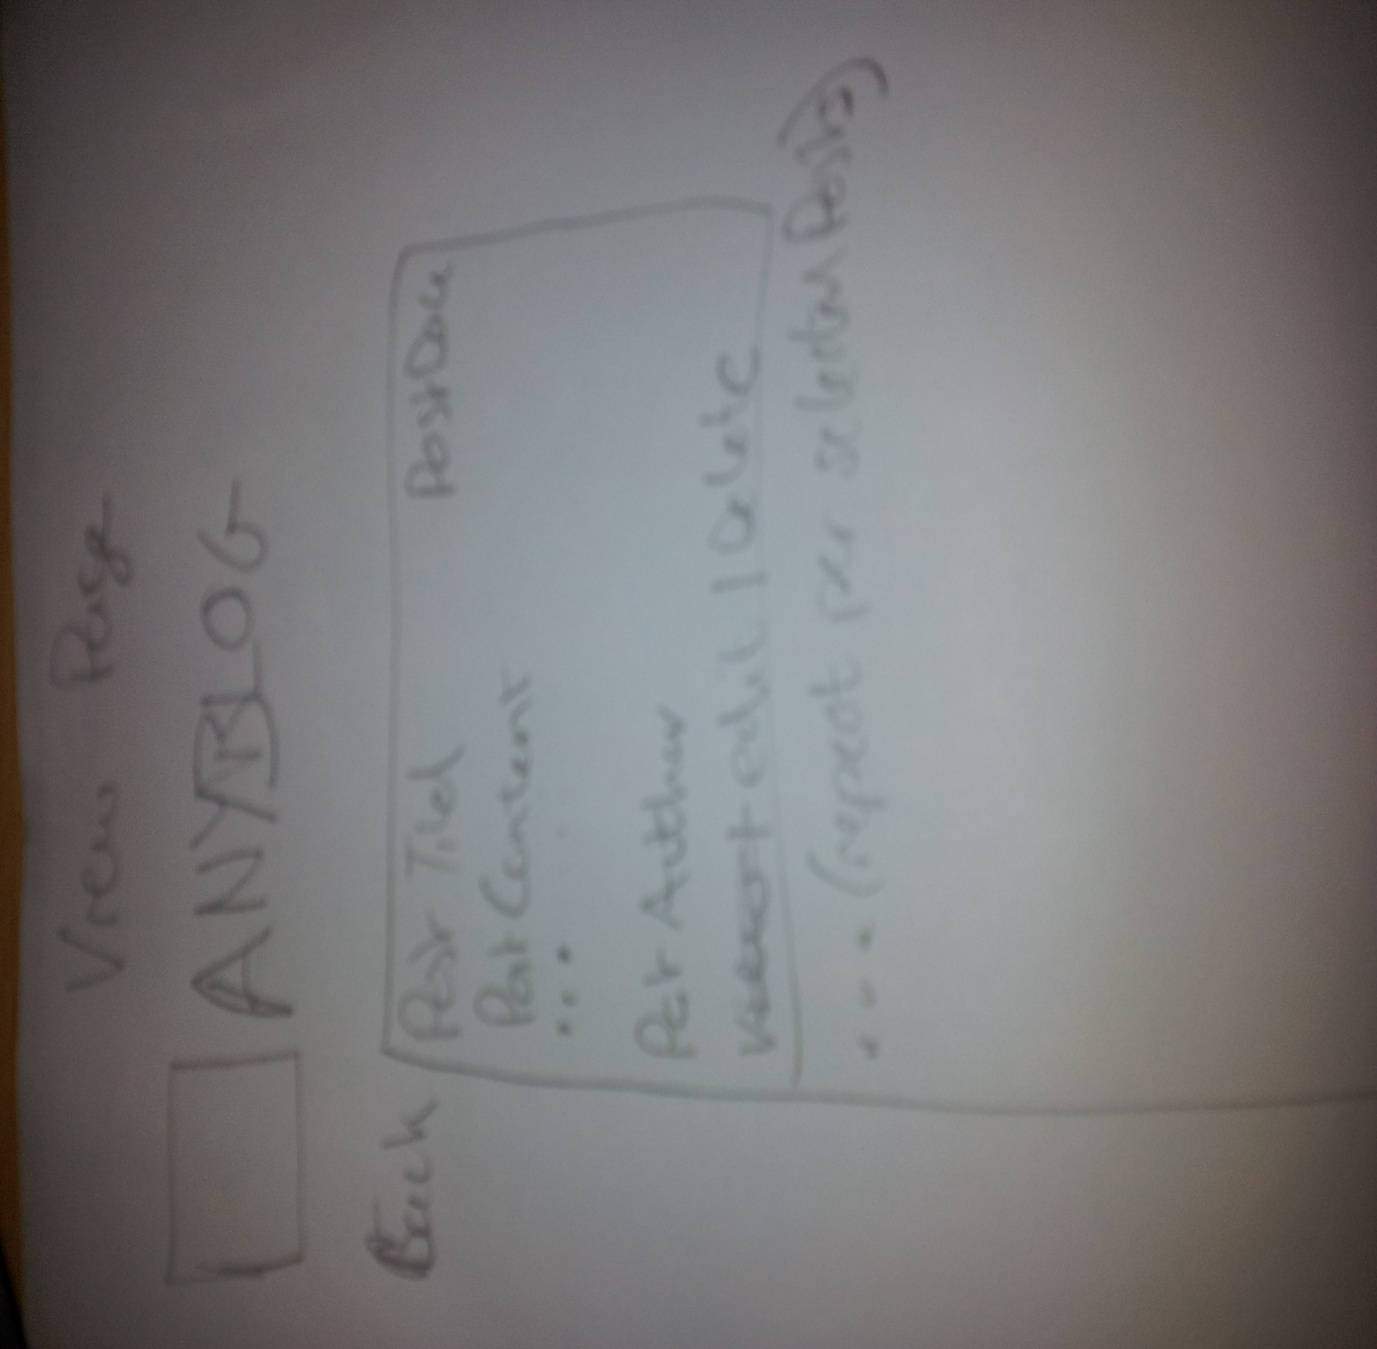 View Page
ANYBLOG
Back
Post Titel PostDate
Post Content
...
Post Author
edit | Delete
... (repeat per selection Posts)